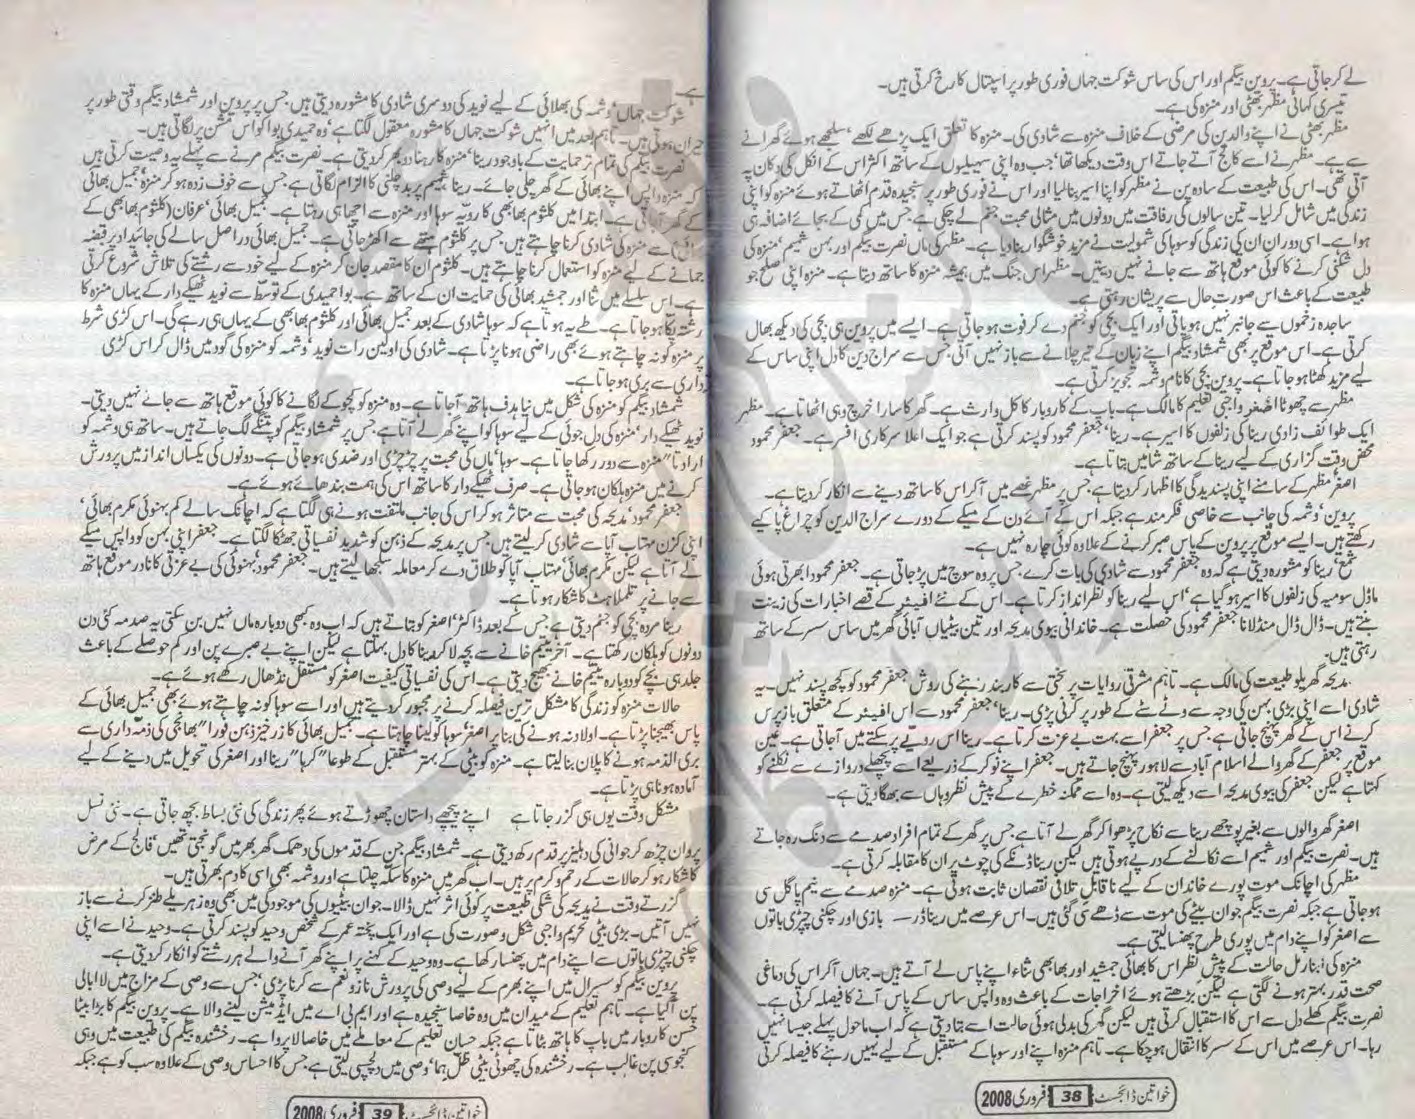 لے کر جاتی ہے۔ پروین بیگم اور اس کی ساس شوکت جہاں فوری طور پر اسپتال کا رخ کرتی ہیں۔
تیسری کہانی مظہر بھٹی اور منزہ کی ہے۔
مظہر بھٹی نے اپنے والدین کی مرضی کے خلاف منزہ سے شادی کی۔ منزہ کا تعلق ایک پڑھے لکھے، سلجھے ہوئے گھرانے
سے ہے۔ مظہر نے اسے کالج آتے جاتے اس وقت دیکھا تھا، جب وہ اپنی سہیلیوں کے ساتھ اکثر اس کے انکل کی دکان پہ
آتی تھی۔ اس کی طبیعت کے سادہ پن نے مظہر کو اپنا اسیر بنا لیا اور اس نے فوری طور پر سنجیدہ قدم اٹھاتے ہوئے منزہ کو اپنی
زندگی میں شامل کر لیا۔ تین سالوں کی رفاقت میں دونوں میں مثالی محبت جنم لے چکی ہے جس میں کمی کے بجائے اضافہ ہی
ہوا ہے۔ اسی دوران ان کی زندگی کو سوہا کی شمولیت نے مزید خوشگوار بنا دیا ہے۔ مظہر کی ماں نصرت بیگم اور بہن شمیم، منزہ کی
دل شکنی کرنے کا کوئی موقع ہاتھ سے جانے نہیں دیتیں۔ مظہر اس جنگ میں ہمیشہ منزہ کا ساتھ دیتا ہے۔ منزہ اپنی صلح جو
طبیعت کے باعث اس صورت حال سے پریشان رہتی ہے۔
ساجدہ زخموں سے جانبر نہیں ہو پاتی اور ایک بچی کو جنم دے کر فوت ہو جاتی ہے۔ ایسے میں پروین ہی بچی کی دیکھ بھال
کرتی ہے۔ اس موقع پر بھی شمشاد بیگم اپنے زبان کے تیر چلانے سے باز نہیں آتی جس سے سراج دین کا دل اپنی ساس کے
لیے مزید کھٹا ہو جاتا ہے۔ پروین بچی کا نام وشمہ تجویز کرتی ہے۔
مظہر سے چھوٹا اصغر واجبی تعلیم کا مالک ہے۔ باپ کے کاروبار کا کل وارث ہے۔ گھر کا سارا خرچ وہی اٹھاتا ہے۔ مظہر
ایک طوائف زادی رینا کی زلفوں کا اسیر ہے۔ رینا، جعفر محمود کو پسند کرتی ہے جو ایک اعلا سرکاری افسر ہے۔ جعفر محمود
محض وقت گزاری کے لیے رینا کے ساتھ شامیں بتاتا ہے۔
اصغر مظہر کے سامنے اپنی پسندیدگی کا اظہار کر دیتا ہے، جس پر مظہر غصے میں آکر اس کا ساتھ دینے سے انکار کر دیتا ہے۔
پروین، وشمہ کی جانب سے خاصی فکر مند ہے جبکہ اس کے آئے دن کے میکے کے دورے سراج الدین کو چراغ پا کیے
رکھتے ہیں۔ ایسے موقع پر پروین کے پاس صبر کرنے کے علاوہ کوئی چارہ نہیں ہے۔
شمع، رینا کو مشورہ دیتی ہے کہ وہ جعفر محمود سے شادی کی بات کرے، جس پر وہ سوچ میں پڑ جاتی ہے۔ جعفر محمود ابھرتی ہوئی
ماڈل سومیہ کی زلفوں کا اسیر ہو گیا ہے، اس لیے رینا کو نظر انداز کرتا ہے۔ اس کے نئے افیئر کے قصے اخبارات کی زینت
بنتے ہیں۔ ڈال ڈال منڈلانا جعفر محمود کی خصلت ہے۔ خاندانی بیوی مدیحہ اور تین بیٹیاں آبائی گھر میں ساس سسر کے ساتھ
رہتی ہیں۔
مدیحہ گھریلو طبیعت کی مالک ہے۔ تاہم مشرقی روایات پر سختی سے کاربند رہنے کی روش جعفر محمود کو کچھ پسند نہیں۔ یہ
شادی اسے اپنی بڑی بہن کی وجہ سے وٹے سٹے کے طور پر کرنی پڑی۔ رینا، جعفر محمود سے اس افیئر کے متعلق باز پرس
کرنے اس کے گھر پہنچ جاتی ہے جس پر جعفر اسے بہت بے عزت کرتا ہے۔ رینا اس رویے پر سکتے میں آجاتی ہے۔ عین
موقع پر جعفر کے گھر والے اسلام آباد سے لاہور پہنچ جاتے ہیں۔ جعفر اپنے نوکر کے ذریعے اسے پچھلے دروازے سے نکلنے کو
کہتا ہے لیکن جعفر کی بیوی مدیحہ اسے دیکھ لیتی ہے۔ وہ اسے ممکنہ خطرے کے پیش نظر وہاں سے بھگا دیتی ہے۔
اصغر گھر والوں سے بغیر پوچھے رینا سے نکاح پڑھوا کر گھر لے آتا ہے جس پر گھر کے تمام افراد صدمے سے دنگ رہ جاتے
ہیں۔ نصرت بیگم اور شمیم اسے نکالنے کے درپے ہوتی ہیں لیکن رینا ڈنکے کی چوٹ پر ان کا مقابلہ کرتی ہے۔
مظہر کی اچانک موت پورے خاندان کے لیے ناقابل تلافی نقصان ثابت ہوتی ہے۔ منزہ صدمے سے نیم پاگل سی
ہو جاتی ہے جبکہ نصرت بیگم جوان بیٹے کی موت سے ڈھے سی گئی ہیں۔ اس عرصے میں رینا ڈر — بازی اور چکنی چپڑی باتوں
سے اصغر کو اپنے دام میں پوری طرح پھنسا لیتی ہے۔
منزہ کی ابنارمل حالت کے پیش نظر اس کا بھائی جمشید اور بھابھی ثناء اپنے پاس لے آتے ہیں۔ جہاں آکر اس کی دماغی
صحت قدرے بہتر ہونے لگتی ہے لیکن بڑھتے ہوئے اخراجات کے باعث وہ واپس ساس کے پاس آنے کا فیصلہ کرتی ہے۔
نصرت بیگم کھلے دل سے اس کا استقبال کرتی ہیں لیکن گھر کی بدلی ہوئی حالت اسے بتا دیتی ہے کہ اب ماحول پہلے جیسا نہیں
رہا۔ اس عرصے میں اس کے سسر کا انتقال ہو چکا ہے۔ تاہم منزہ اپنے اور سوہا کے مستقبل کے لیے یہیں رہنے کا فیصلہ کرتی
خواتین ڈائجسٹ 38 فروری 2008
ہے۔
شوکت جہاں، وشمہ کی بھلائی کے لیے نوید کی دوسری شادی کا مشورہ دیتی ہیں جس پر پروین اور شمشاد بیگم وقتی طور پر
حیران ہوتی ہیں۔ تاہم بعد میں انہیں شوکت جہاں کا مشورہ معقول لگتا ہے، وہ حمیدی بوا کو اس مشن پر لگاتی ہیں۔
نصرت بیگم کی تمام تر حمایت کے باوجود رینا، منزہ کا رہنا دوبھر کر دیتی ہے۔ نصرت بیگم مرنے سے پہلے یہ وصیت کرتی ہیں
کہ منزہ واپس اپنے بھائی کے گھر چلی جائے۔ رینا، شمیم پر بد چلنی کا الزام لگاتی ہے جس سے خوف زدہ ہو کر منزہ، جمیل بھائی
کے گھر آجاتی ہے۔ ابتدا میں کلثوم بھابھی کا رویہ سوہا اور منزہ سے اچھا ہی رہتا ہے۔ جمیل بھائی، عرفان (کلثوم بھابھی کے
بھائی) سے منزہ کی شادی کرنا چاہتے ہیں جس پر کلثوم ہتھے سے اکھڑ جاتی ہے۔ جمیل بھائی دراصل سالے کی جائیداد پر قبضہ
جمانے کے لیے منزہ کو استعمال کرنا چاہتے ہیں۔ کلثوم ان کا مقصد جان کر منزہ کے لیے خود سے رشتے کی تلاش شروع کرتی
ہے۔ اس سلسلے میں ثنا اور جمشید بھائی کی حمایت ان کے ساتھ ہے۔ بوا حمیدی کے توسط سے نوید ٹھیکے دار کے یہاں منزہ کا
رشتہ پکا ہو جاتا ہے۔ طے یہ ہوتا ہے کہ سوہا شادی کے بعد جمیل بھائی اور کلثوم بھابھی کے یہاں ہی رہے گی۔ اس کڑی شرط
پر منزہ کو نہ چاہتے ہوئے بھی راضی ہونا پڑتا ہے۔ شادی کی اولین رات نوید، وشمہ کو منزہ کی گود میں ڈال کر اس کڑی
داری سے بری ہو جاتا ہے۔
شمشاد بیگم کو منزہ کی شکل میں نیا ہدف ہاتھ آجاتا ہے۔ وہ منزہ کو کچوکے لگانے کا کوئی موقع ہاتھ سے جانے نہیں دیتی۔
نوید ٹھیکے دار، منزہ کی دل جوئی کے لیے سوہا کو اپنے گھر لے آتا ہے جس پر شمشاد بیگم کو پتنگے لگ جاتے ہیں۔ ساتھ ہی وشمہ کو
ارادتاً منزہ سے دور رکھا جاتا ہے۔ سوہا، ماں کی محبت پر چڑچڑی اور ضدی ہو جاتی ہے۔ دونوں کی یکساں انداز میں پرورش
کرنے میں منزہ ہلکان ہو جاتی ہے۔ صرف ٹھیکے دار کا ساتھ اس کی ہمت بندھائے ہوئے ہے۔
جعفر محمود، مدیحہ کی محبت سے متاثر ہو کر اس کی جانب ملتفت ہونے ہی لگتا ہے کہ اچانک سالے کم بہنوئی مکرم بھائی،
اپنی کزن مہتاب آپا سے شادی کر لیتے ہیں جس پر مدیحہ کے ذہن کو شدید نفسیاتی جھٹکا لگتا ہے۔ جعفر اپنی بہن کو واپس میکے
لے آتا ہے لیکن مکرم بھائی، مہتاب آپا کو طلاق دے کر معاملہ سلجھا لیتے ہیں۔ جعفر محمود، بہنوئی کی بے عزتی کا نادر موقع ہاتھ
سے جانے پر تلملاہٹ کا شکار ہوتا ہے۔
رینا مردہ بچی کو جنم دیتی ہے جس کے بعد ڈاکٹر، اصغر کو بتاتے ہیں کہ اب وہ کبھی دوبارہ ماں نہیں بن سکتی۔ یہ صدمہ کئی دن
دونوں کو ہلکان رکھتا ہے۔ آخر یتیم خانے سے بچہ لا کر رینا کا دل بہلتا ہے لیکن اپنے بے صبرے پن اور کم حوصلے کے باعث
جلد ہی بچے کو دوبارہ یتیم خانے بھیج دیتی ہے۔ اس کی نفسیاتی کیفیت اصغر کو مستقل نڈھال رکھے ہوئے ہے۔
حالات منزہ کو زندگی کا مشکل ترین فیصلہ کرنے پر مجبور کر دیتے ہیں اور اسے سوہا کو نہ چاہتے ہوئے بھی جمیل بھائی کے
پاس بھیجنا پڑتا ہے۔ اولاد نہ ہونے کی بنا پر اصغر، سوہا کو لینا چاہتا ہے۔ جمیل بھائی کا زرخیز ذہن فوراً بھانجی کی ذمہ داری سے
بری الذمہ ہونے کا پلان بنا لیتا ہے۔ منزہ کو بیٹی کے بہتر مستقبل کے طوعاً کرہاً رینا اور اصغر کی تحویل میں دینے کے لیے
آمادہ ہونا ہی پڑتا ہے۔
مشکل وقت یوں ہی گزر جاتا ہے اپنے پیچھے داستان چھوڑتے ہوئے پھر زندگی کی نئی بساط بچھ جاتی ہے۔ نئی نسل
پروان چڑھ کر جوانی کی دہلیز پر قدم رکھ دیتی ہے۔ شمشاد بیگم جن کے قدموں کی دھمک گھر بھر میں گونجتی تھیں، فالج کے مرض
کا شکار ہو کر حالات کے رحم و کرم پر ہیں۔ اب گھر میں منزہ کا سکہ چلتا ہے اور وشمہ بھی اسی کا دم بھرتی ہیں۔
گزرتے وقت نے مدیحہ کی شکی طبیعت پر کوئی اثر نہیں ڈالا۔ جوان بیٹیوں کی موجودگی میں بھی وہ زہریلے طنز کرنے سے باز
نہیں آتیں۔ بڑی بیٹی تحریم واجبی شکل و صورت کی ہے اور ایک پختہ عمر کے شخص وحید کو پسند کرتی ہے۔ وحید نے اسے اپنی
چکنی چپڑی باتوں سے اپنے دام میں پھنسا رکھا ہے۔ وہ وحید کے کہنے پر اپنے گھر آنے والے ہر رشتے کو انکار کر دیتی ہے۔
پروین بیگم کو سسرال میں اپنے بھرم کے لیے وصی کی پرورش ناز و نعم سے کرنا پڑی، جس سے وصی کے مزاج میں لاابالی
پن آگیا ہے۔ تاہم تعلیم کے میدان میں وہ خاصا سنجیدہ ہے اور ایم بی اے میں ایڈمیشن لینے والا ہے۔ پروین بیگم کا بڑا بیٹا
حسن کاروبار میں باپ کا ہاتھ بٹاتا ہے جبکہ حسان تعلیم کے معاملے میں خاصا لاپروا ہے۔ رخشندہ بیگم کی طبیعت میں وہی
کنجوسی پن غالب ہے۔ رخشندہ کی چھوٹی بیٹی ظل ہما، وصی میں دلچسپی لیتی ہے، جس کا احساس وصی کے علاوہ سب کو ہے جبکہ
خواتین ڈائجسٹ 39 فروری 2008